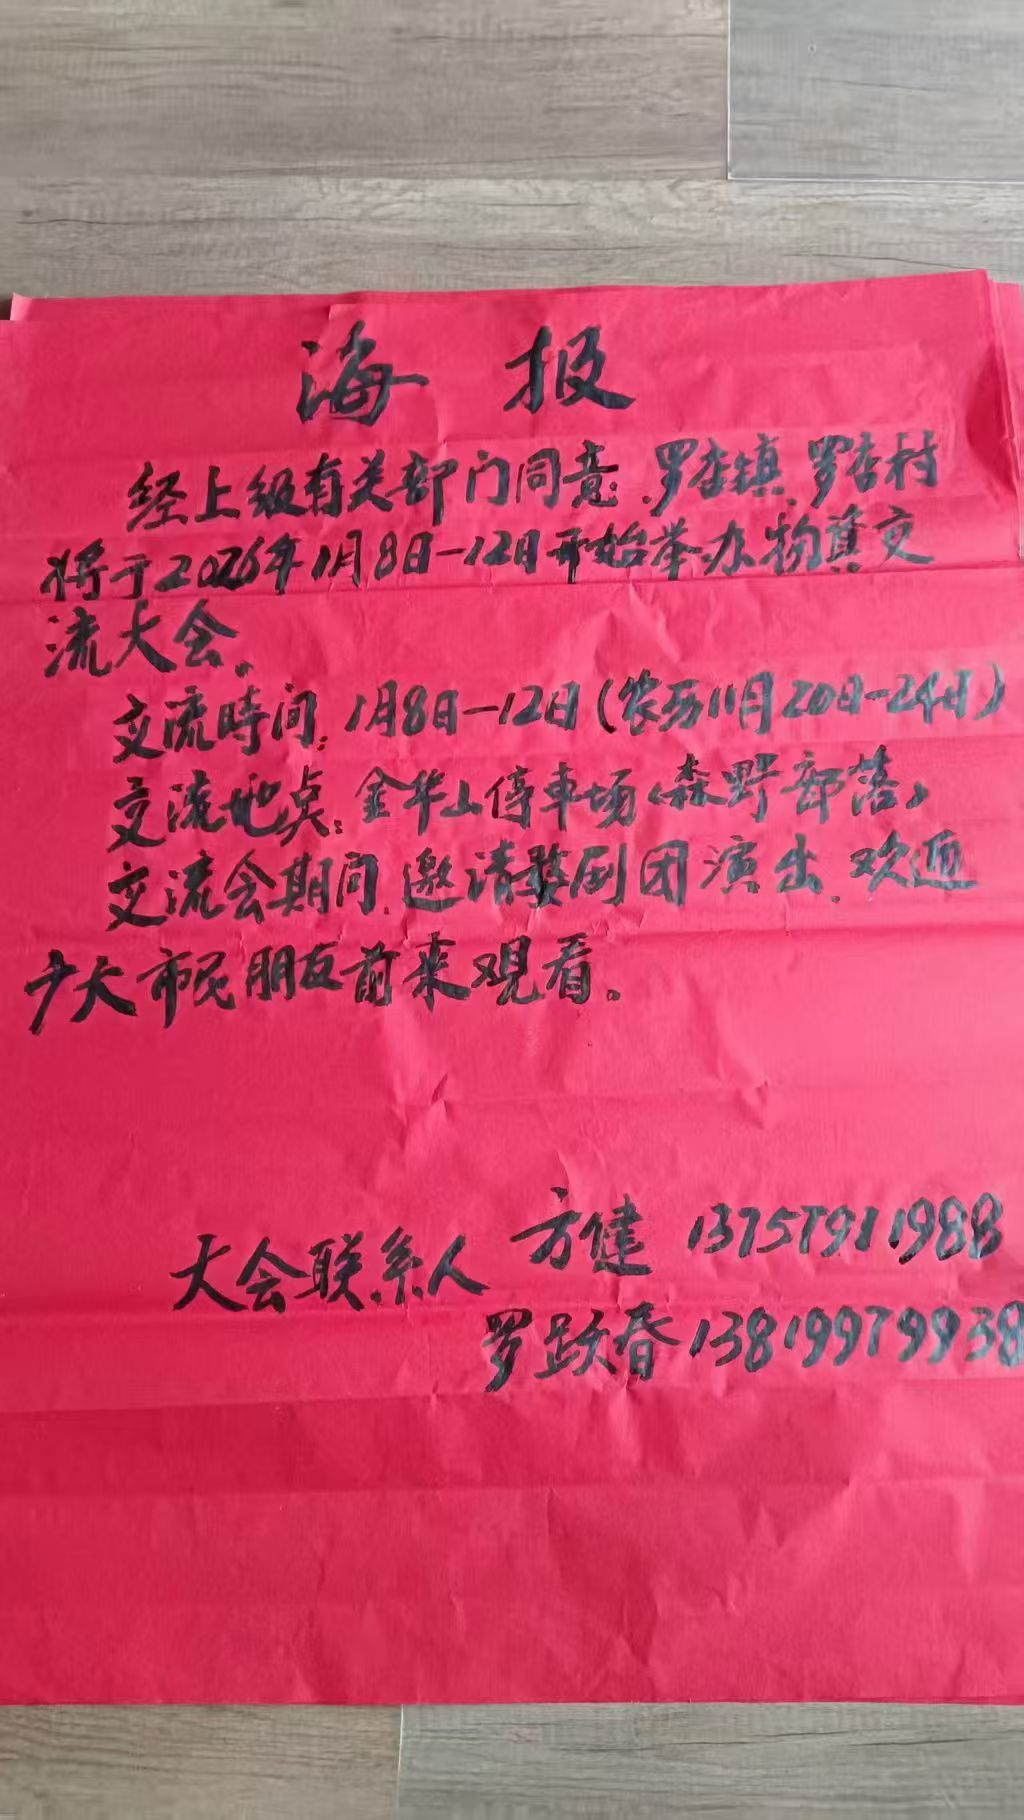 海报
经上级有关部门同意、罗店镇、罗店村
将于2026年1月8日-12日开始举办物资交
流大会。
交流時间：1月8日-12日(农历11月20日-24日)
交流地点：金华山停車场《森野部落》
交流会期间、邀请婺剧团演出、欢迎
广大市民朋友前来观看。
大会联系人 方健 13757911988
罗跃春13819979938